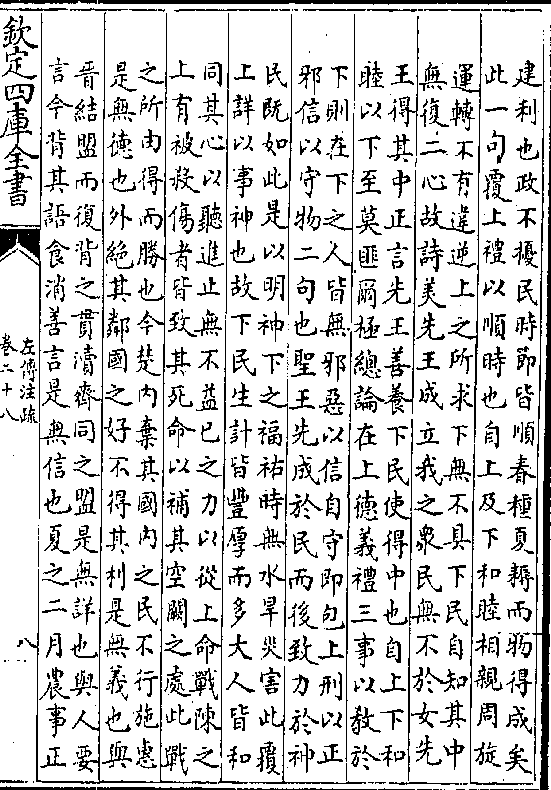 建利也政不擾民時節皆順春種夏耨而物得成矣
此一句覆上禮以順時也自上及下和睦相親周旋
運轉不有違逆上之所求下無不具下民自知其中
無復二心故詩美先王成立我之衆民無不於女先
王得其中正言先王善養下民使得中也自上下和
睦以下至莫匪爾極總論在上德義禮三事以教於
下則在下之人皆無邪惡以信自守即包上刑以正
邪信以守物二句也聖王先成於民而後致力於神
民既如此是以明神下之福祐時無水旱災害此覆
上詳以事神也故下民生計皆豐厚而多大人皆和
同其心以聽進止無不益已之力以從上命戰陳之
上有被殺傷者皆致其死命以補其空闕之處此戰
之所由得而勝也今楚内棄其國内之民不行施惠
是無德也外絶其鄰國之好不得其利是無義也與
晉結盟而復背之貫瀆齊同之盟是無詳也與人要
言今背其語食消善言是無信也夏之二月農事正
欽定四庫全書
左傳注疏
卷二十八
八